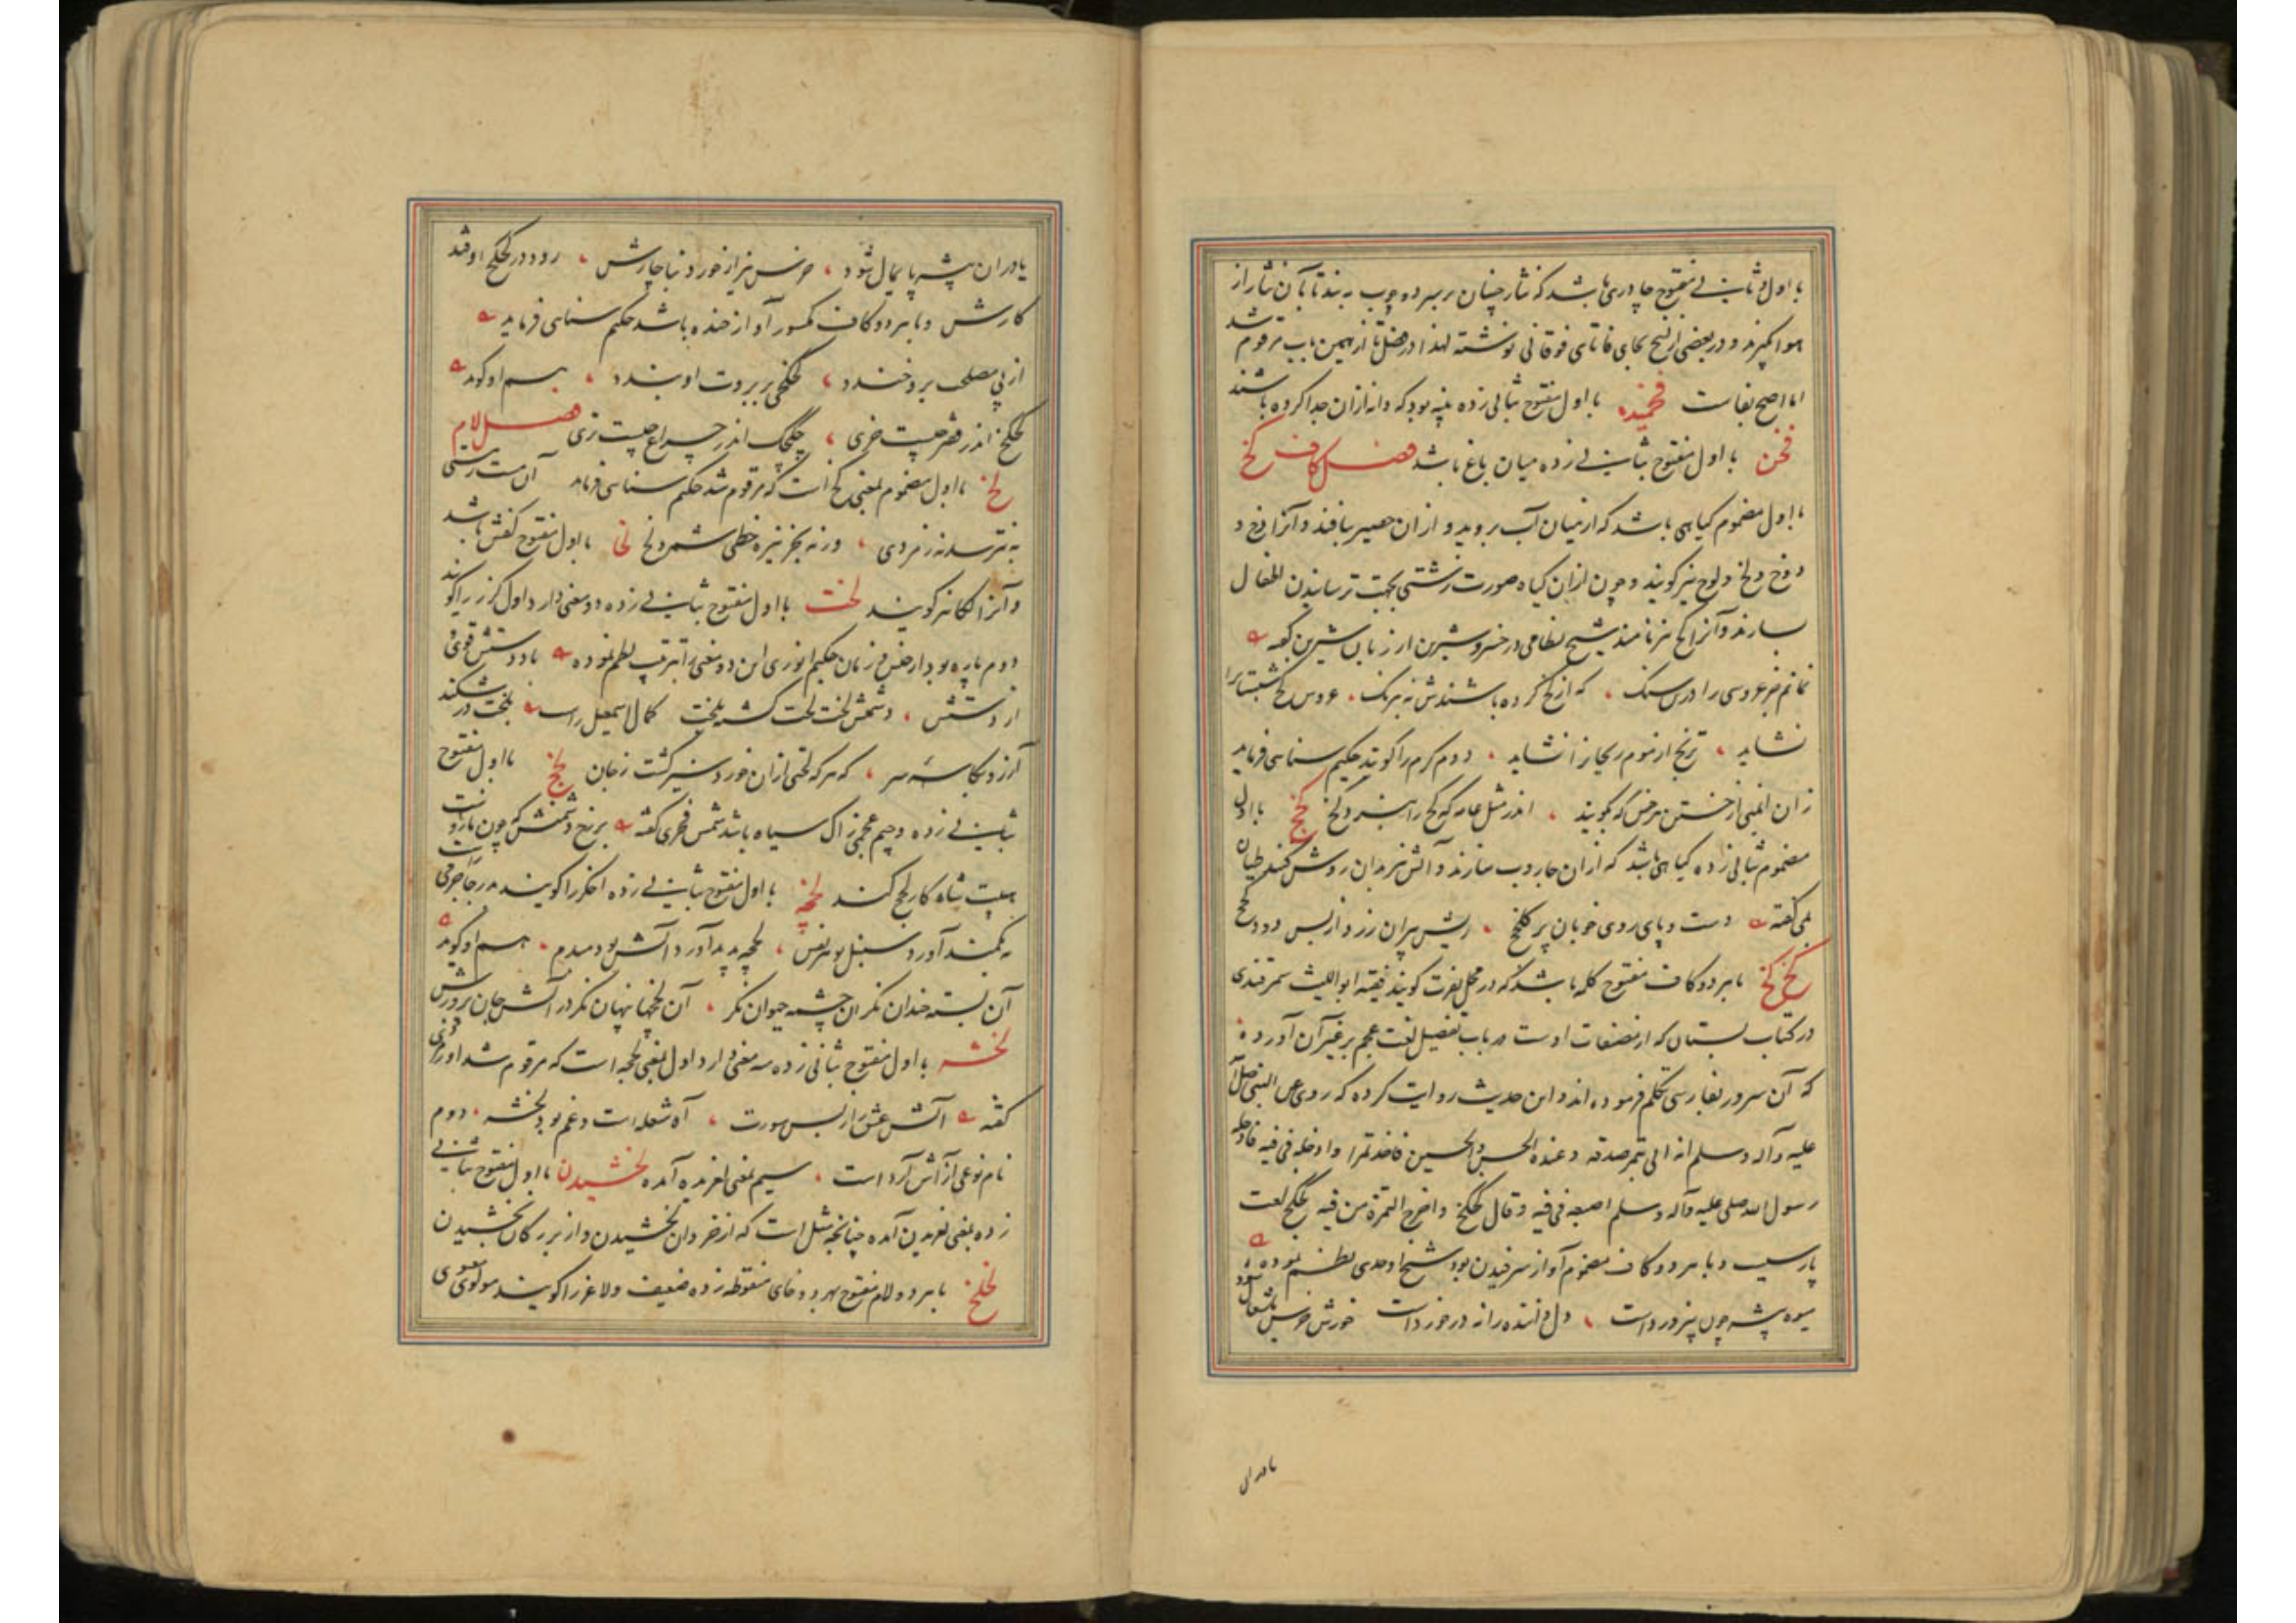 با اول و ثانی مفتوح چادری باشد که نثار چینان بر سر دو چوب به بندند تا بآن نثار از
هوا گیرند و در بعضی از نسخ بجای فا تای فوقانی نوشته لهذا در فصل تا از همین باب مرقوم شد
اما اصح بفاست فخمیده با اول مفتوح بثانی زده پنبه بود که دانه ازان جدا کرده باشند
فخن با اول مفتوح بثانی زده میان باغ باشد فصل کاف کخ
با اول مضموم گیاهی باشد که از میان آب بروید و ازان حصیر بافند و آنرا رخ و
دوخ و لخ و لوخ نیز گویند و چون ازان گیاه صورت زشتی بجهت ترسانیدن اطفال
سازند و آنرا کخ نیز نامند شیخ نظامی در خسرو شیرین از زبان شیرین گفته
نمانم جز عروسی را درین سنگ که از کخ کرده باشندش به نیرنگ عروس کخ شبستانرا
نشاید ترنج از موم ریحانرا نشاید دوم کرم را گویند حکیم سنائی فرماید
زان انجمنی از خستن هر خس که بگویند اندر مثل عامه که کخ را بنبرد کخ کخج با اول
مضموم بثانی زده گیاهی باشد که ازان جاروب سازند و آتش نیز بدان روشن کنند طیان
بمی گفته دست و پای و روی خوبان پر کلخج ریش پیران زرد از بس دود کخج
کخ کخ با هر دو کاف مفتوح کلمه باشد که در محل نفرت گویند فقیه ابواللیث سمرقندی
در کتاب بستان که از مصنفات اوست در باب تفضیل لغت عجم بر غیر آن آورده
که آن سرور بفارسی تکلم فرموده اند و این حدیث روایت کرده که روی عن النبی صلی الله
علیه وآله وسلم انه اتی بتمر صدقه وعنده الحسن والحسین فاخذ تمرا وادخله فی فیه فادخل
رسول الله صلی علیه وآله وسلم اصبعه فی فیه وقال کخکخ واخرج التمرة من فیه کخکخ لغت
پارسیست و با هر دو کاف مضموم آواز سرفیدن بود شیخ اوحدی نظم نموده
میوه پیشه چون پنیر در دست دل داننده را نه در خوردست خورش خویش با شغال آرد
یا دران
یا دران پشه پایمال شود خرس نیز از خورد بناچارش رود در کخکخ اوفتد
کارش و با هر دو کاف مکسور آواز خنده باشد حکیم سنائی فرماید
از پی مصلحت برو خندد کخکخی بر بروت او بندد هم او گوید
کخکخ اندر قفر چیست خری چکچک اندر چراغ چیست تری فصل لام
لخ با اول مضموم بمعنی کخ است که مرقوم شد حکیم سنائی فرماید آن ست رستی
نه بترسد نه ز مردی ورنه بجز نیزه خطی شمرد لخ لخا با اول مفتوح کفش باشد
و آنرا لکا نیز گویند لخت با اول مفتوح بثانی زده دو معنی دارد اول گرز را گویند
دوم پاره بود از جنس و زمان حکیم انوری این دو معنی را بترتیب نظم نموده باد دستش قوی
از دستش دشمنش لخت لخت گشته بلخت کمال اسمعیل راست بلخت در شکند
آرزو بکاسه سر که هر که لختی ازان خورد سیر گشت ز جان لخج با اول مفتوح
بثانی زده و جیم عجمی زاک سیاه باشد شمس فخری گفته بر رخ دشمنش که چون مازوست
هیبت شاه کار لخج کند لخچه با اول مفتوح بثانی زده اخگر را گویند میر جاجرمی راست
به کمند آورد سنبل بو نفس لخچه پدید آورد آتش بودم هم او گوید
آن پسته خندان نگر ان چشمه حیوان نگر آن لخچها پنهان نگر در آتش جان پرورش
لخشه با اول مفتوح بثانی زده سه معنی دارد اول بمعنی لخچه است که مرقوم شد اورمزدی
گفته آتش عشق از بس سورت آه شعله است و غم بود لخشه دوم
نام نوعی از آش آرد است سیم بمعنی لغزیده آمده لخشیدن با اول مفتوح بثانی
زده بمعنی لغزیدن آمده چنانچه مثل است که از خردان لخشیدن و از بزرگان بخشیدن
لخلخ با هر دو لام مفتوح بهر دو خای منقوطه زده ضعیف و لاغر را گویند مولوی معنوی